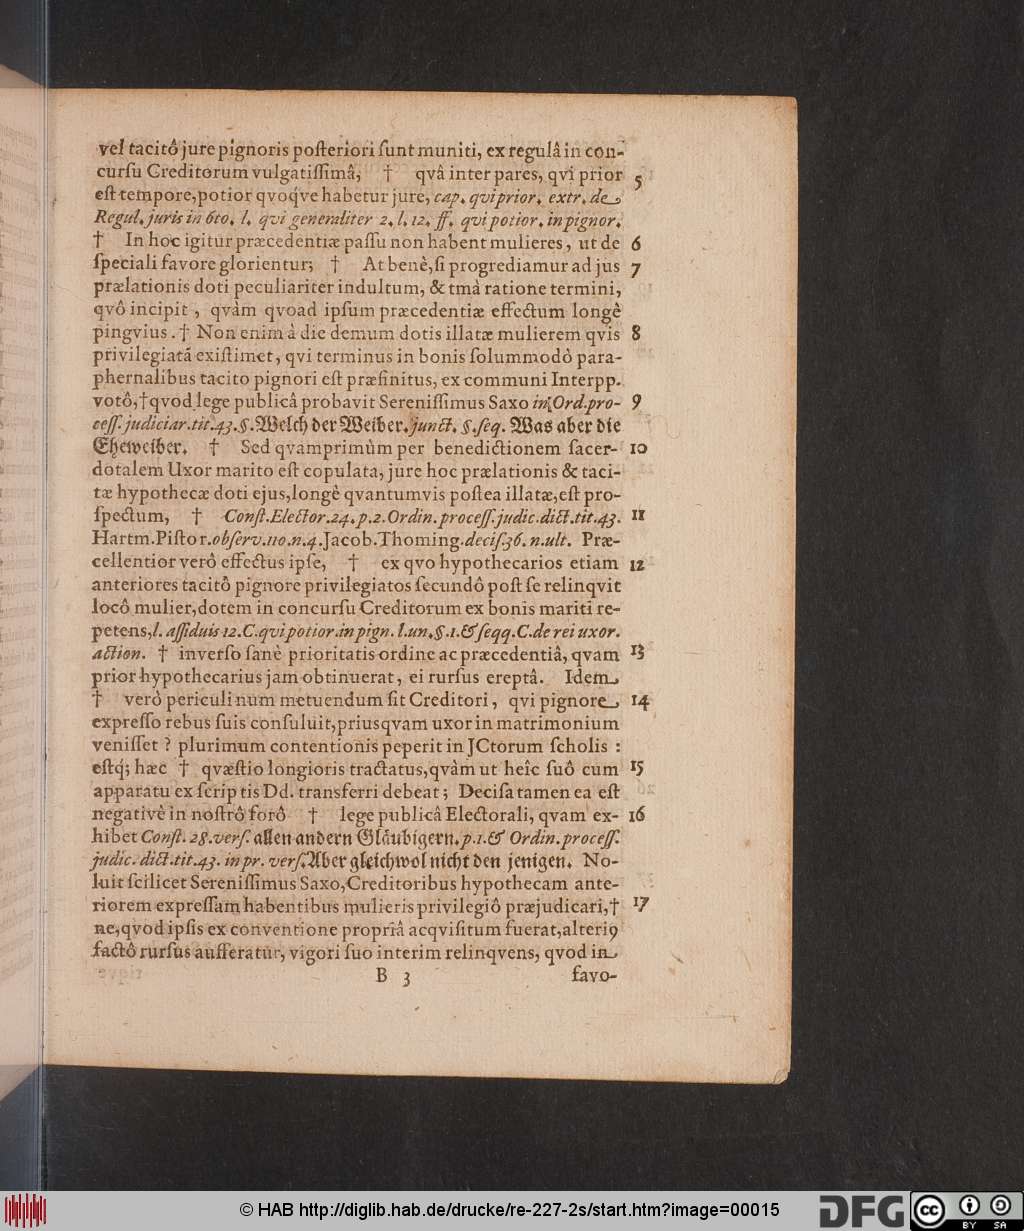 vel tacitô jure pignoris posteriori sunt muniti, ex regulâ in con-
cursu Creditorum vulgatissimâ, † qvâ inter pares, qvi prior 5
est tempore, potior qvoq́ve habetur jure, cap. qvi prior. extr. de
Regul. juris in 6to. l. qvi generaliter 2. l. 12. ff. qvi potior. in pignor.
† In hoc igitur præcedentiæ passu non habent mulieres, ut de 6
speciali favore glorientur; † At benè, si progrediamur ad jus 7
prælationis doti peculiariter indultum, & tmà ratione termini,
qvô incipit, qvàm qvoad ipsum præcedentiæ effectum longè
pingvius. † Non enim à die demum dotis illatæ mulierem qvis 8
privilegiatã existimet, qvi terminus in bonis solummodò para-
phernalibus tacito pignori est præfinitus, ex communi Interpp.
votô, † qvod lege publicâ probavit Serenissimus Saxo in Ord. pro- 9
cess. judiciar. tit. 43. §. Welch der Weiber. junct. §. seq. Was aber die
Eheweiber. † Sed qvamprimùm per benedictionem sacer- 10
dotalem Uxor marito est copulata, jure hoc prælationis & taci-
tæ hypothecæ doti ejus, longè qvantumvis postea illatæ, est pro-
spectum, † Const. Elector. 24. p. 2. Ordin. process. judic. dict. tit. 43. 11
Hartm. Pistor. observ. 110. n. 4. Jacob. Thoming. decis. 36. n. ult. Præ-
cellentior verô effectus ipse, † ex qvo hypothecarios etiam 12
anteriores tacitô pignore privilegiatos secundô post se relinqvit
locô mulier, dotem in concursu Creditorum ex bonis mariti re-
petens, l. assiduis 12. C. qvi potior. in pign. l. un. §. 1. & seqq. C. de rei uxor.
action. † inverso sanè prioritatis ordine ac præcedentiâ, qvam 13
prior hypothecarius jam obtinuerat, ei rursus ereptâ. Idem
† verò periculi num metuendum sit Creditori, qvi pignore 14
expresso rebus suis consuluit, priusqvam uxor in matrimonium
venisset? plurimum contentionis peperit in JCtorum scholis:
estq́; hæc † qvæstio longioris tractatus, qvàm ut heîc suô cum 15
apparatu ex scriptis Dd. transferri debeat; Decisa tamen ea est
negativè in nostrô forô † lege publicâ Electorali, qvam ex- 16
hibet Const. 28. vers. allen andern Gläubigern. p. 1. & Ordin. process.
judic. dict. tit. 43. in pr. vers. Aber gleichwol nicht den jenigen. No-
luit scilicet Serenissimus Saxo, Creditoribus hypothecam ante-
riorem expressam habentibus mulieris privilegiô præjudicari, † 17
ne, qvod ipsis ex conventione propriâ acqvisitum fuerat, alteriꝰ
factô rursus aufferatur, vigori suo interim relinqvens, qvod in
B 3 favo-
© HAB http://diglib.hab.de/drucke/re-227-2s/start.htm?image=00015
DFG
cc BY SA